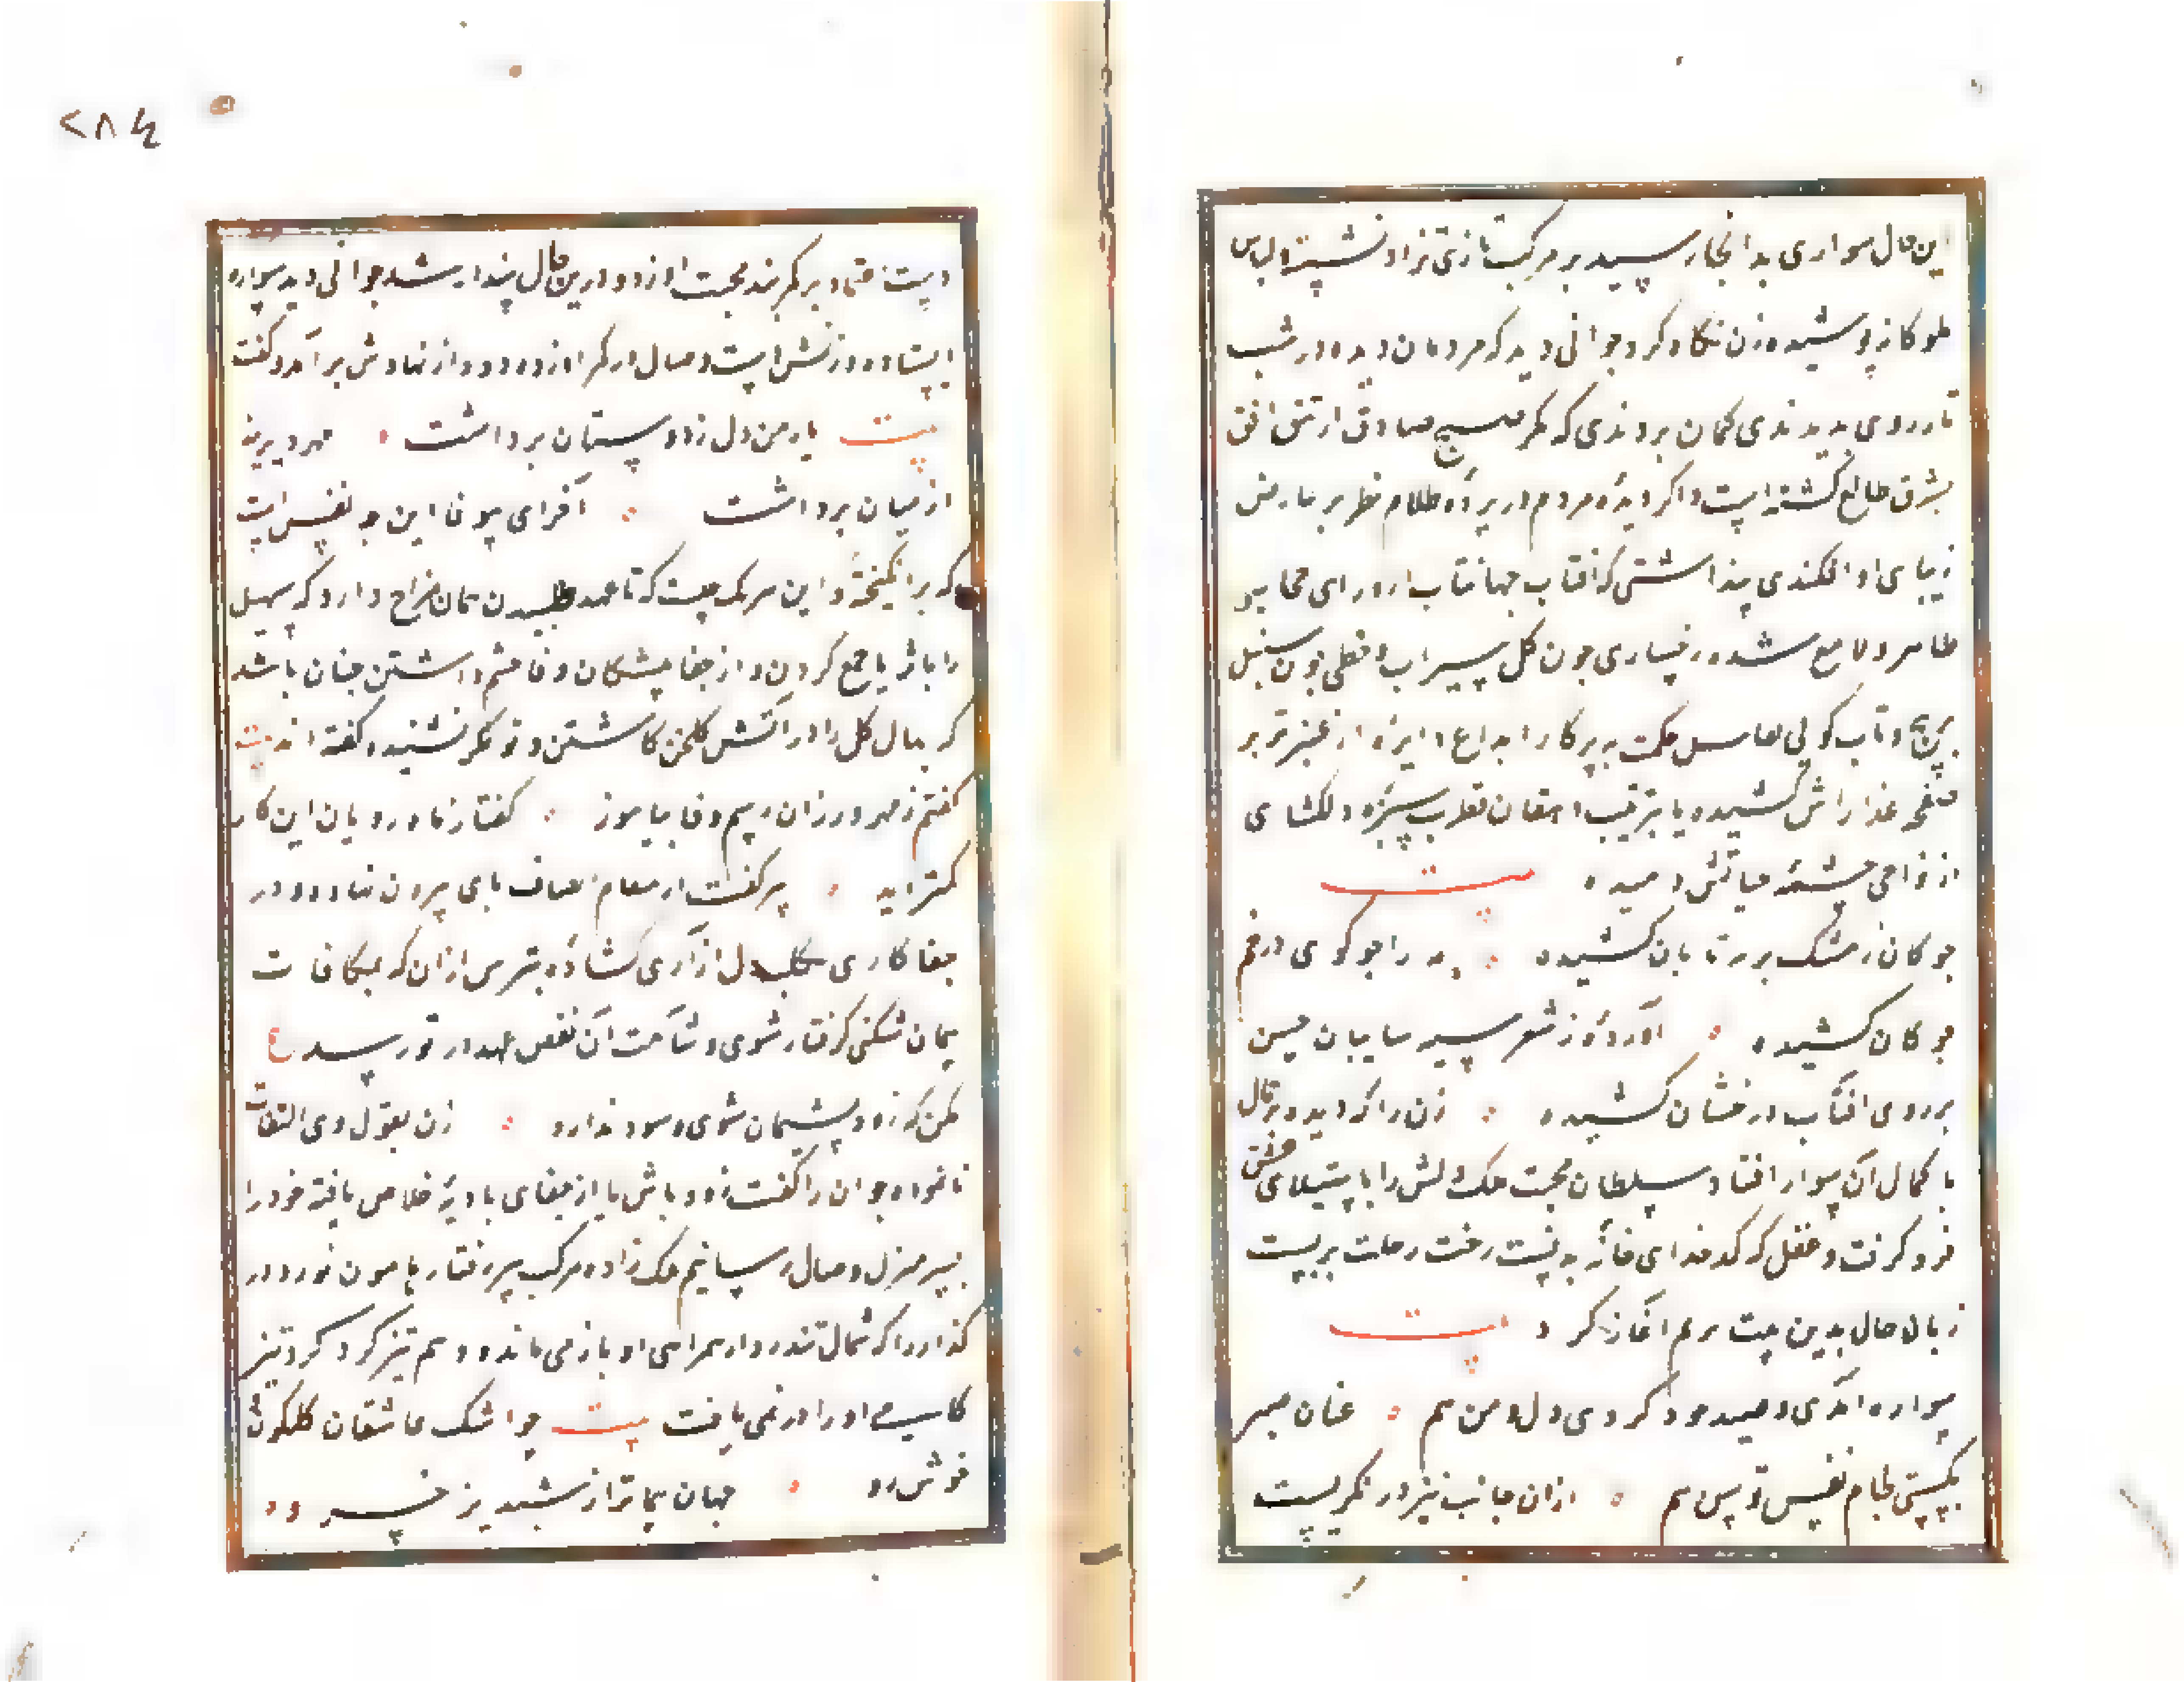 این حال سواری بدانجا رسید بر مرکب تازی نژاد نشسته و لباس
ملوکانه پوشیده زن نگاه کرد جوانی دید که مردمان دیده در شب
تار روی بدیدندی گمان بردندی که مگر صبح صادق از تتق افق
مشرق طالع گشته است و اگر دیدهٔ مردم در پردهٔ ظلام نظر بر عارض
زیبای او افکندی پنداشتی که آفتاب جهانتاب از ورای حجاب
ظاهر و لامع شده رخساری چون گل سیراب و خطی چون سنبل
پرپیچ و تاب گویی مهندس حکمت به پرکار ابداع دایرهٔ از عنبر تر بر
صفحه عذارش کشیده یا بترتیب دهقان قدرت سبزهٔ دلکشای
از نواحی چشمهٔ حیاتش دمیده بیت
چوکان ز مشک بر مه تابان کشیده مه را چو کوی در خم
چوکان کشیده آوردهٔ ز شعر سیه سایبان حسن
بر روی آفتاب درخشان کشیده زن را که دیده بر جمال
با کمال آن سوار افتاد سلطان محبت ملک دلش را با ستیلای عشق
فرو گرفت و عقل که کدخدای خانهٔ بدنست رخت رحلت بربست
زبان حال بدین بیت ترنم آغاز کرد بیت
سواره آمدی و صید خود کردی دل و من هم عنان صبر
بگسستی لجام نفس توسن هم ازان جانب نیز درنگریست
دست اعتماد بر کمربند محبت او زد و درین حال بیدار شد جوانی دید سواره
ایستاده و زنش است وصال در کمر او زده دود از نهادش برآمد و گفت
بیت یار من دل ز دوستان برداشت مهر دیرینه
از میان برداشت آخر ای بیوفا این چه نفس است
که برانگیختهٔ و این سر یک چیست که تا عهد طلبیدن همان مزاج دارد که سهیل
را با ثریا جمع کردن و از جفا پیشگان وفا چشم داشتن چنان باشد
که نهال گل را در آتش گلخن کاشتن و تو مگر نشنیده گفته اند بیت
گفتم ز مهرورزان رسم وفا بیاموز گفتا ز ماه رویان این کار
کمتر آید پیر گفت از مقام انصاف پای بیرون نهاده و در
جفاکاری و دل آزاری گشادهٔ بترس از آن که بمکافات
پیمان شکنی گرفتار شوی و شآمت آن نقض عهد در تو رسد ع
مکن که زود پشیمان شوی و سود ندارد زن بقول وی التفات
نانموده جوان را گفت زود باش تا از جفای بادیه خلاصی یافته خود را
بسر منزل وصال رسانیم ملک زاده مرکب سیر رفتار هامون نورد در
گذار را که شمال تندرو از همراهی او باز می ماند و وهم تیز گرد گرد تیز
کام او را در نمی یافت بیت چو اشک عاشقان گلگون
خوش رو جهان پیماتر از شبدیز خسرو
۲۸۴